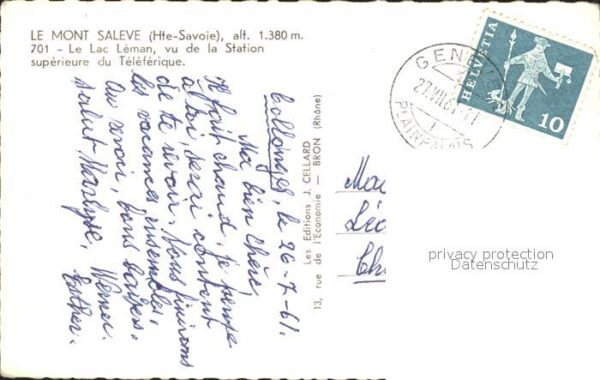 LE MONT SALEVE (Hte-Savoie), alt. 1.380 m.
701 - Le Lac Léman, vu de la Station
supérieure du Téléférique.
Collonges, le 26-7-61.
Ma bien chère,
Il fait chaud, je pense
à toi, serai content
de te revoir. Nous finirons
les vacances ensembles.
Au revoir, bons baisers.
Werner.
Salut Marlyse, Esther.
Les Editions J. CELLARD
13, rue de l'Economie — BRON (Rhône)
GENÈV
27.VII.61-11
PLAINPALAIS
HELVETIA
10
privacy protection
Datenschutz